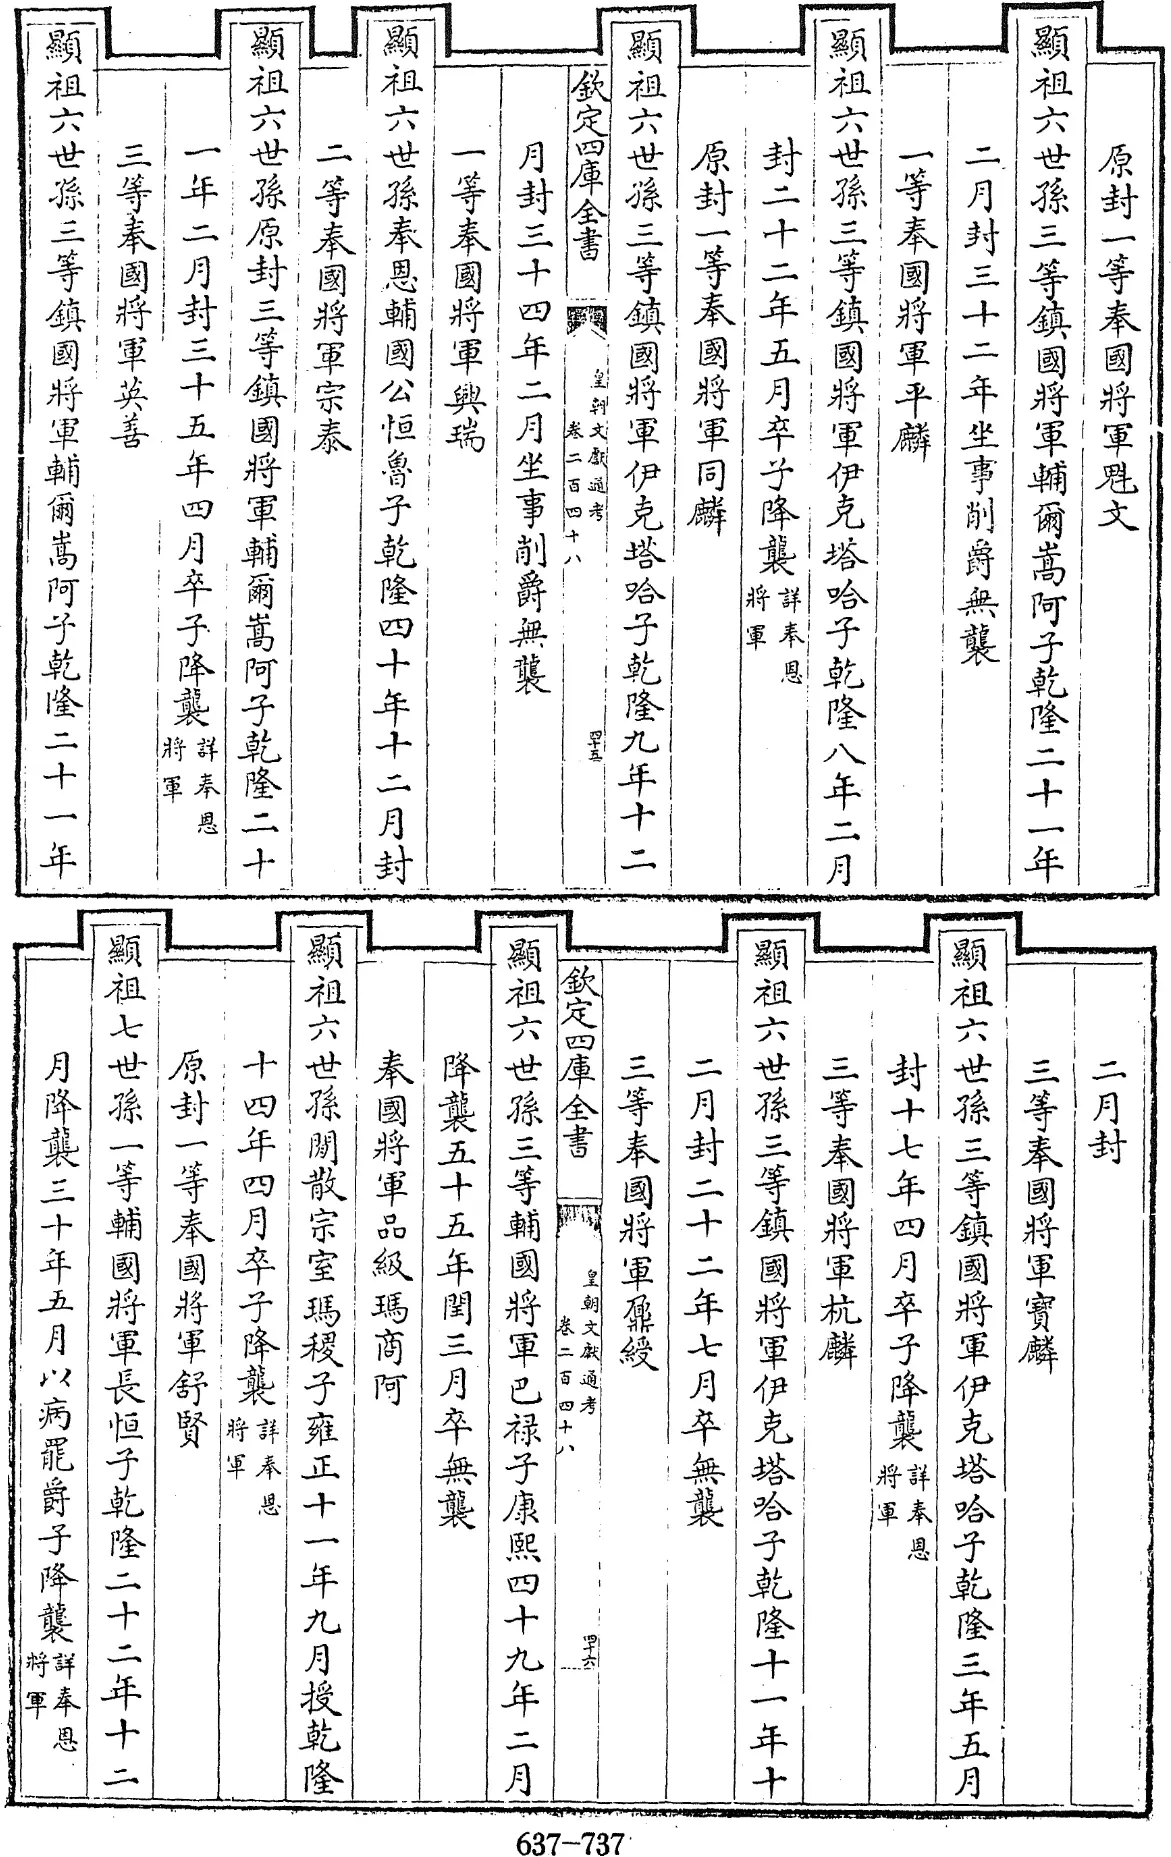 原封一等奉國將軍魁文
顯祖六世孫三等鎮國將軍輔爾嵩阿子乾隆二十一年
二月封三十二年坐事削爵無襲
一等奉國將軍平麟
顯祖六世孫三等鎮國將軍伊克塔哈子乾隆八年二月
封二十二年五月卒子降襲詳奉恩將軍
原封一等奉國將軍同麟
顯祖六世孫三等鎮國將軍伊克塔哈子乾隆九年十二
欽定四庫全書 皇朝文獻通考卷二百四十八 四十五
月封三十四年二月坐事削爵無襲
一等奉國將軍興瑞
顯祖六世孫奉恩輔國公恒魯子乾隆四十年十二月封
二等奉國將軍宗泰
顯祖六世孫原封三等鎮國將軍輔爾嵩阿子乾隆二十
一年二月封三十五年四月卒子降襲詳奉恩將軍
三等奉國將軍英善
顯祖六世孫三等鎮國將軍輔爾嵩阿子乾隆二十一年
二月封
三等奉國將軍寶麟
顯祖六世孫三等鎮國將軍伊克塔哈子乾隆三年五月
封十七年四月卒子降襲詳奉恩將軍
三等奉國將軍杭麟
顯祖六世孫三等鎮國將軍伊克塔哈子乾隆十一年十
二月封二十二年七月卒無襲
三等奉國將軍鼐綬
欽定四庫全書 皇朝文獻通考卷二百四十八 四十六
顯祖六世孫三等輔國將軍巴祿子康熙四十九年二月
降襲五十五年閏三月卒無襲
奉國將軍品級瑪商阿
顯祖六世孫閒散宗室瑪稷子雍正十一年九月授乾隆
十四年四月卒子降襲詳奉恩將軍
原封一等奉國將軍舒賢
顯祖七世孫一等輔國將軍長恒子乾隆二十二年十二
月降襲三十年五月以病罷爵子降襲詳奉恩將軍
637-737